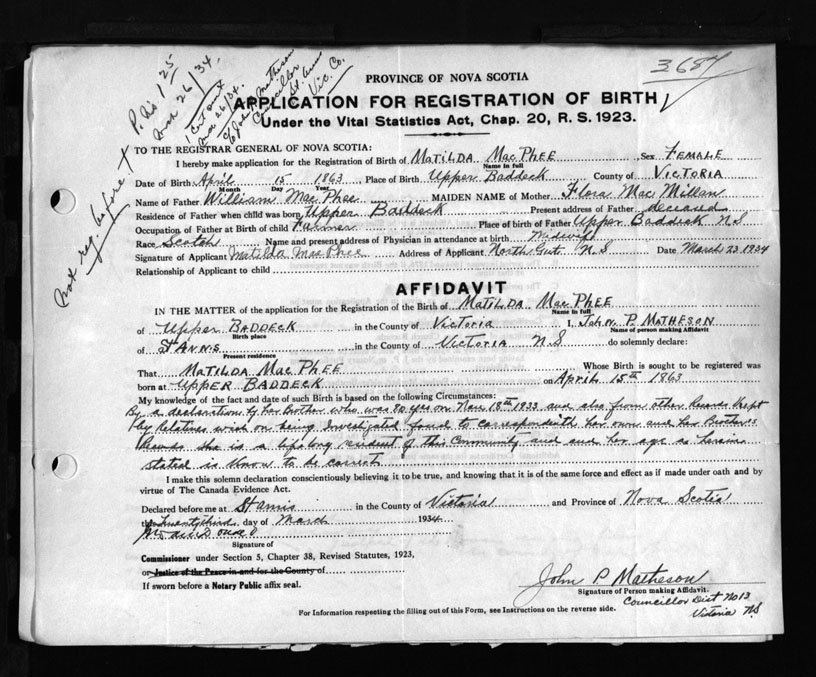 3687
P. Dis 1 25
Mar 26/34.
1 Cert sent
Mar 26/34.
c/o John P. Matheson
Councillor
St. Anns
Vic. Co.
Not reg. before
PROVINCE OF NOVA SCOTIA
APPLICATION FOR REGISTRATION OF BIRTH
Under the Vital Statistics Act, Chap. 20, R. S. 1923.
TO THE REGISTRAR GENERAL OF NOVA SCOTIA:
I hereby make application for the Registration of Birth of MATILDA MacPHEE Sex FEMALE
Name in full
Date of Birth April 15 1863 Place of Birth Upper Baddeck County of VICTORIA
Month Day Year
Name of Father William MacPhee MAIDEN NAME of Mother Flora MacMillan
Residence of Father when child was born Upper Baddeck Present address of Father deceased
Occupation of Father at Birth of child Farmer Place of birth of Father Upper Baddeck N S
Race Scotch Name and present address of Physician in attendance at birth Midwife
Signature of Applicant Matilda MacPhee Address of Applicant North Gut N S Date March 23 1934
Relationship of Applicant to child
AFFIDAVIT
IN THE MATTER of the application for the Registration of the Birth of MATILDA MacPHEE
Name in full
of UPPER BADDECK in the County of VICTORIA I, JOHN. P. MATHESON
Birth place Name of person making Affidavit
of ST ANNS in the County of VICTORIA N.S do solemnly declare:
Present residence
That MATILDA MacPHEE Whose Birth is sought to be registered was
born at UPPER BADDECK on April 15th 1863
My knowledge of the fact and date of such Birth is based on the following Circumstances:
By a declaration by her Brother who was 80 yrs on 18th 1933 and also from other Records Kept
by Relatives on being Investigated found to correspond with her own and her Brothers
Records she is a lifelong resident of this Community and her age as herein
stated is Known to be correct
I make this solemn declaration conscientiously believing it to be true, and knowing that it is of the same force and effect as if made under oath and by
virtue of The Canada Evidence Act.
Declared before me at St anns in the County of Victoria and Province of Nova Scotia
this Twenty third day of March 1934
Signature of
Commissioner under Section 5, Chapter 38, Revised Statutes, 1923,
or Justice of the Peace in and for the County of
If sworn before a Notary Public affix seal.
John P Matheson
Signature of Person making Affidavit.
Councillor Dist No 13
Victoria N.S
For Information respecting the filling out of this Form, see Instructions on the reverse side.